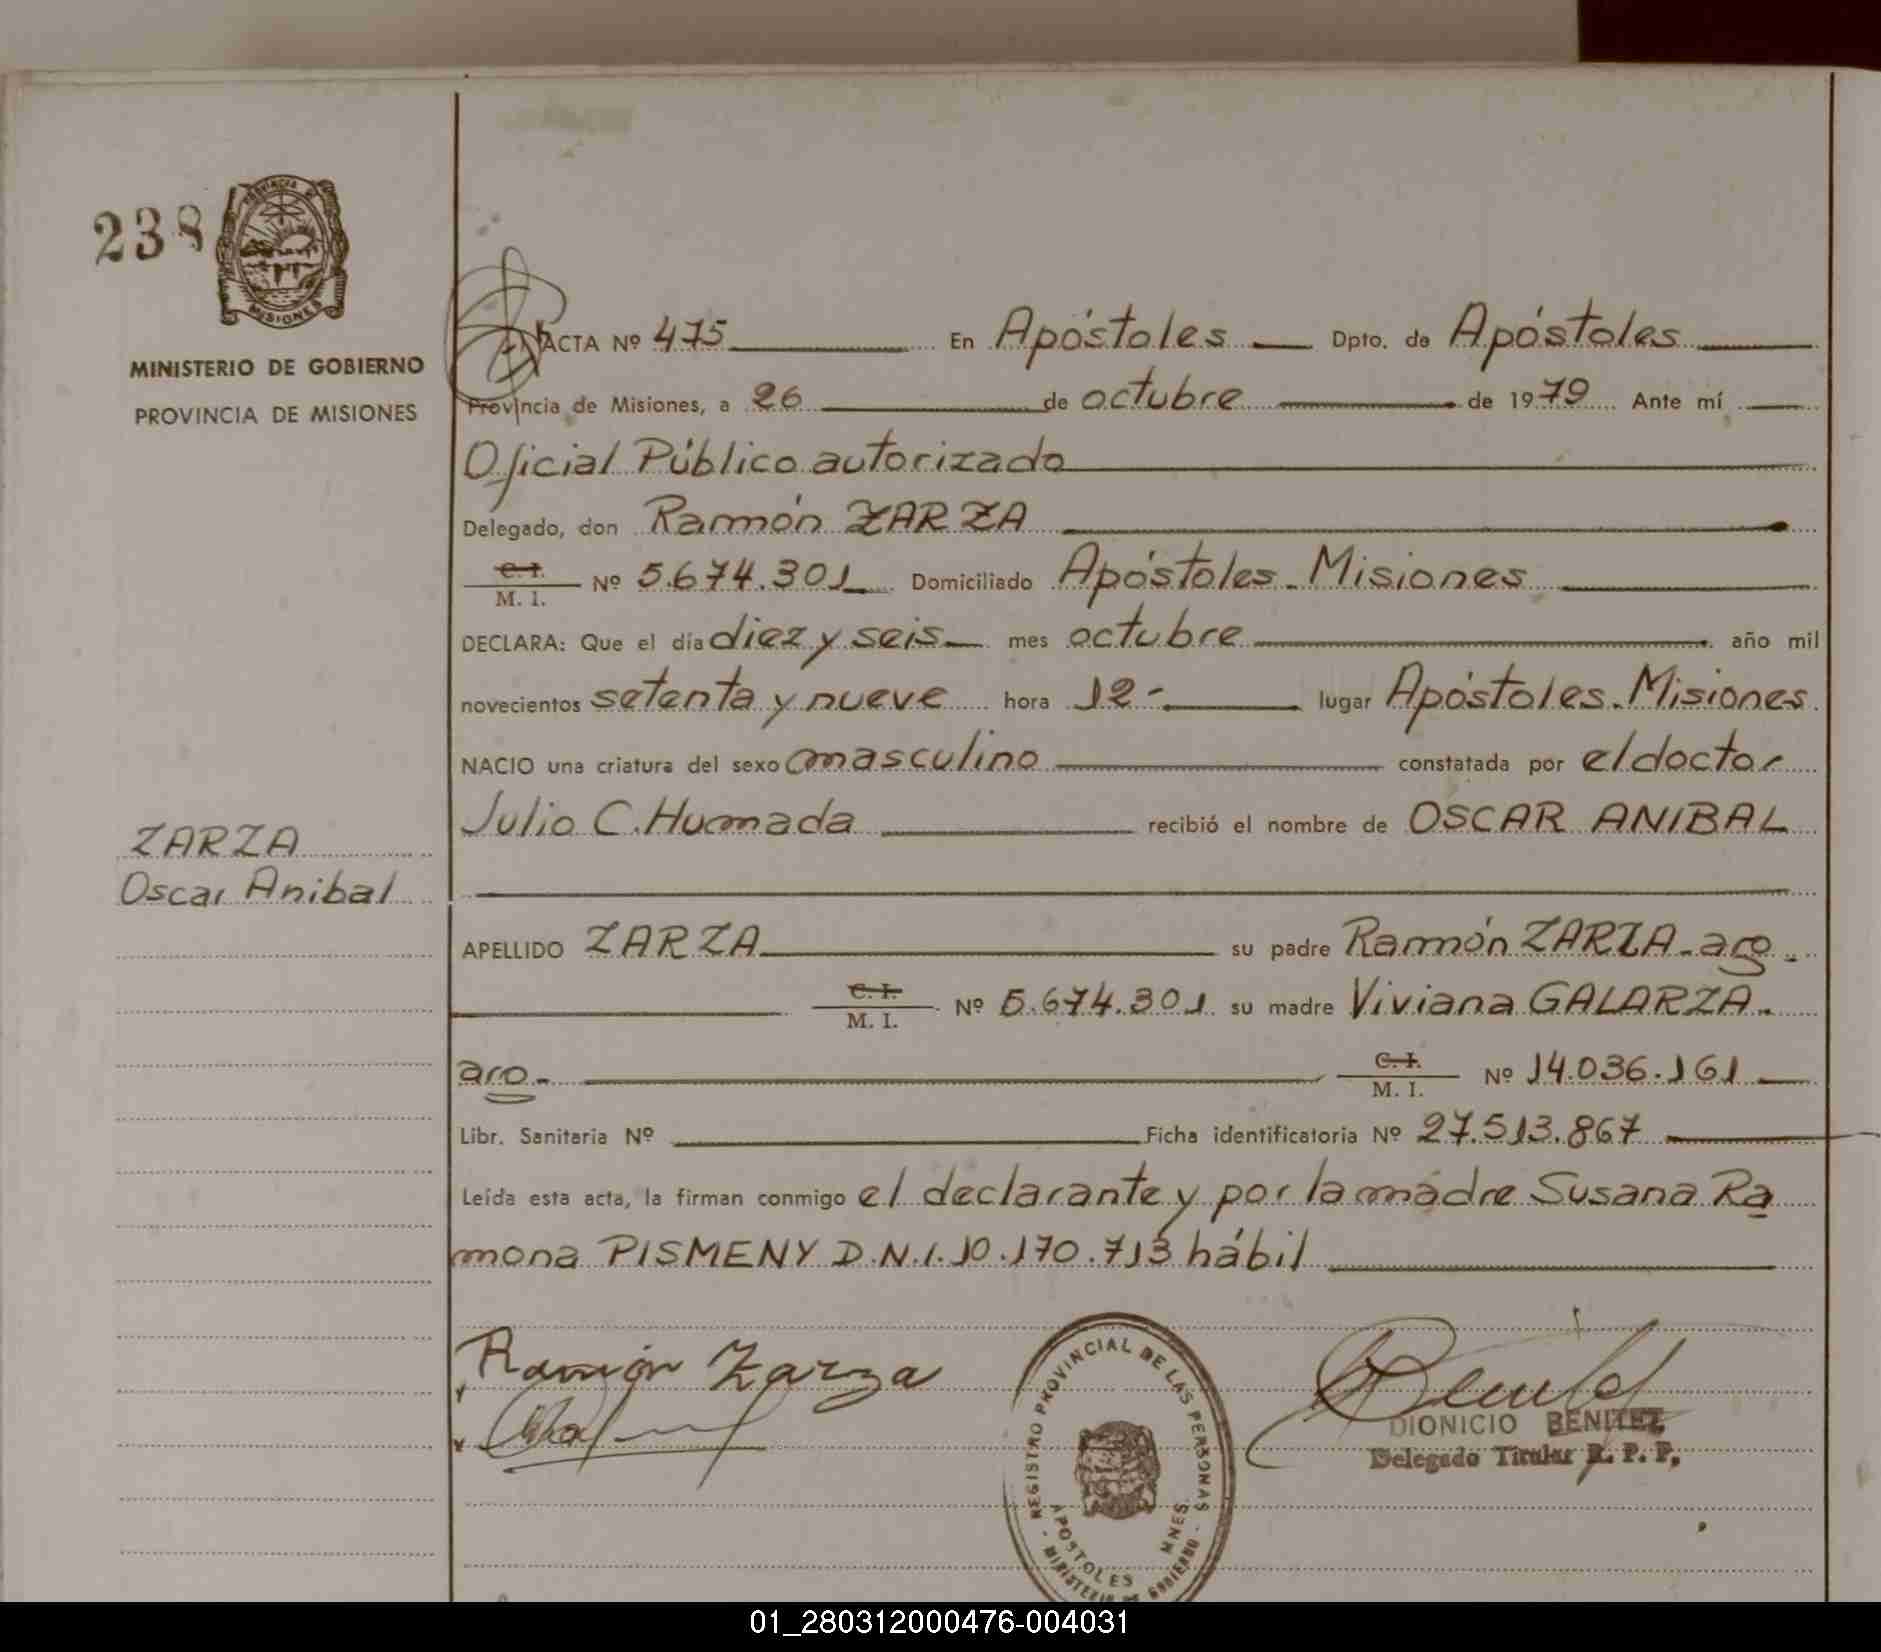 238
PROVINCIA DE
MISIONES
MINISTERIO DE GOBIERNO
PROVINCIA DE MISIONES
ZARZA
Oscar Anibal
ACTA Nº 475 En Apóstoles Dpto. de Apóstoles
Provincia de Misiones, a 26 de octubre de 1979 Ante mí
Oficial Público autorizado
Delegado, don Ramón ZARZA
C. I.
M. I. Nº 5.674.301 Domiciliado Apóstoles - Misiones
DECLARA: Que el día diez y seis mes octubre año mil
novecientos setenta y nueve hora 12- lugar Apóstoles - Misiones
NACIO una criatura del sexo masculino constatada por el doctor
Julio C. Humada recibió el nombre de OSCAR ANIBAL
APELLIDO ZARZA su padre Ramón ZARZA - arg.
C. I.
M. I. Nº 5.674.301 su madre Viviana GALARZA.
arg. C. I.
M. I. Nº 14.036.161
Libr. Sanitaria Nº Ficha identificatoria Nº 27.513.867
Leída esta acta, la firman conmigo el declarante y por la mádre Susana Ra
mona PISMENY D.N.I. 10.170.713 hábil
Ramón Zarza
DIONICIO BENITEZ
Delegado Titular R. P. P,
REGISTRO PROVINCIAL DE LAS PERSONAS
APOSTOLES MNES.
MINISTERIO DE GOBIERNO
01_280312000476-004031